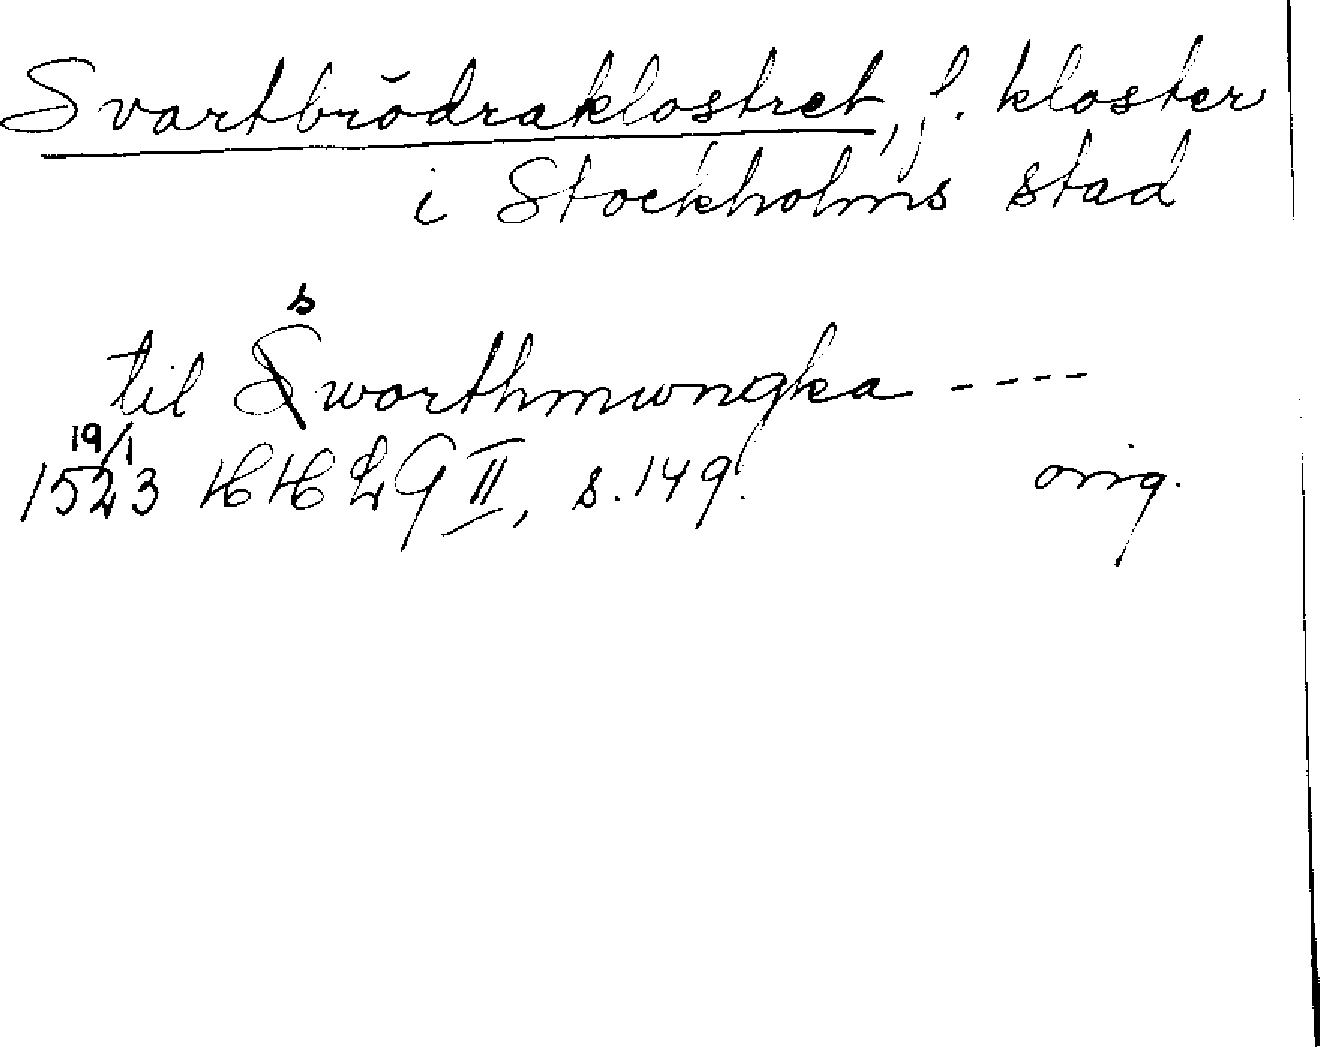 Svartbrödraklostret, f. kloster
i Stockholms stad
til sworthmwngka ----
19/1
1523 HHLG II, s. 149. orig.